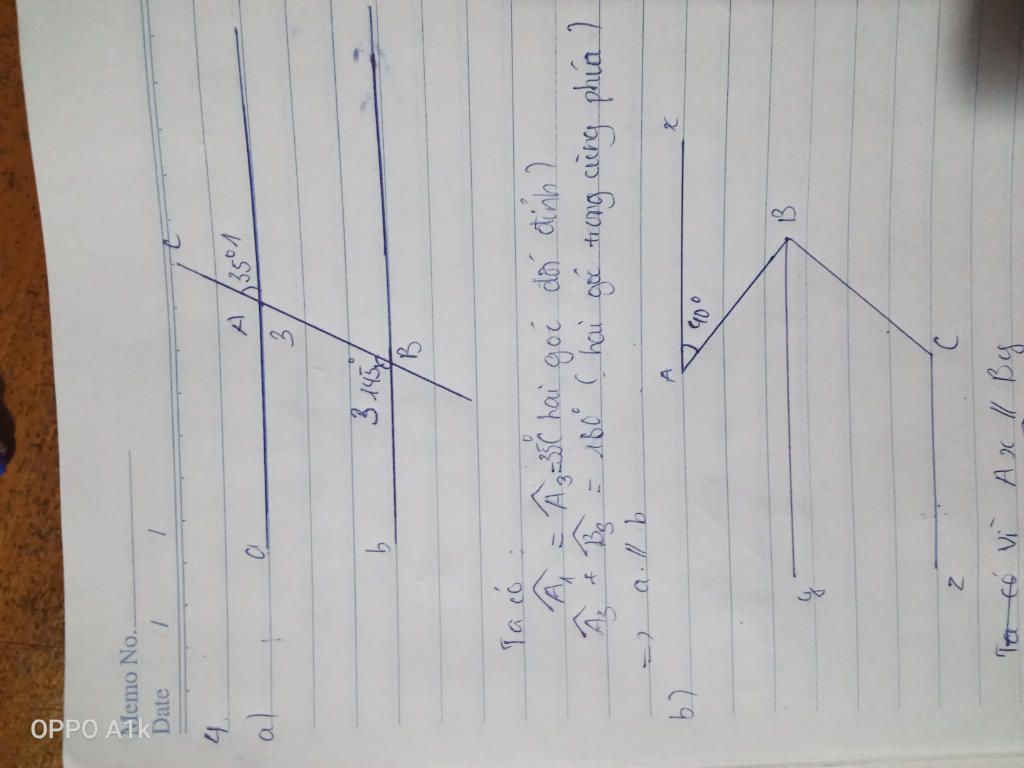 Memo No.
Date / /
4
a)
c
A
35° 1
a
3
3 145°
b
B
Ta có:
A1 = A3 = 35° (hai góc đối đỉnh)
A3 + B3 = 180° (hai góc trong cùng phía)
=> a // b
b)
A
x
40°
B
y
C
z
Ta có vì Ax // By
OPPO A1k